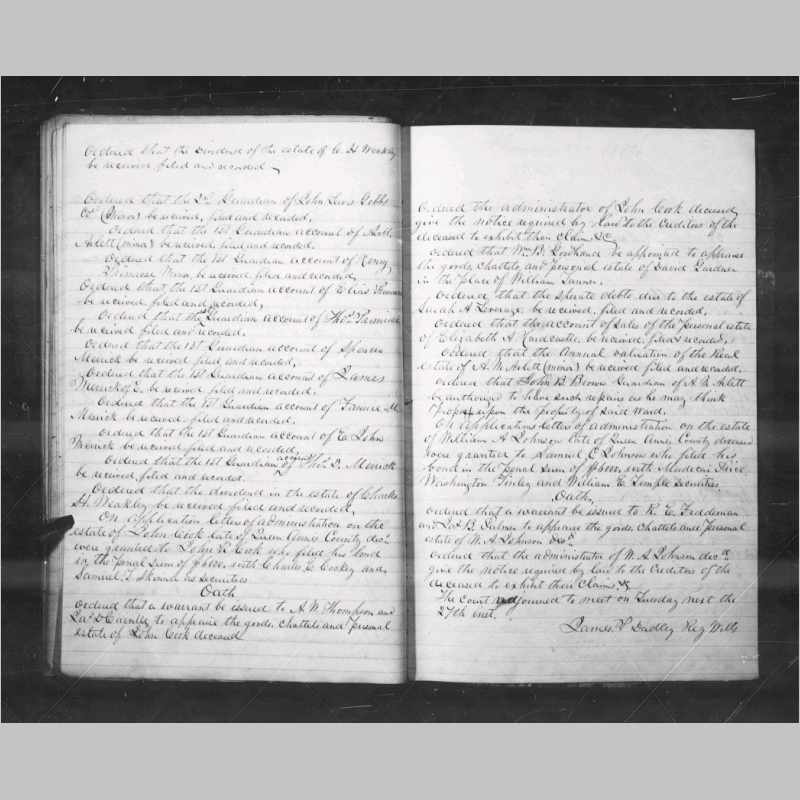 Ordered that the dividend of the estate of C. H. Weakley
be received filed and recorded
Ordered that the 2d Guardian of John Lewis Gibbs
(Minor) be received, filed and recorded,
Ordered that the 1st Guardian account of
Arlett (minor) be received filed and recorded.
Ordered that the 1st Guardian account of Henry
Minor, be received filed and recorded,
Ordered that the 1st Guardian account of Elias
be received filed and recorded,
Ordered that the Guardian account of Thos
be received filed and recorded.
Ordered that the 1st Guardian account of
Merrick be received filed and recorded,
Ordered that the 1st Guardian account of James
Merrick of E. be received filed and recorded.
Ordered that the 1st Guardian account of Samuel
Merrick be received, filed and recorded.
Ordered that the 1st Guardian account of E John
Merrick be received filed and recorded,
Ordered that the 1st Guardian account of Thos D. Merrick
be received, filed and recorded.
Ordered that the dividend in the estate of Charles
H. Weakley be received filed and recorded,
On application letters of administration on the
estate of John Cook late of Queen Annes County decd
were granted to John R Cook who filed his bond
in the penal sum of with Charles C. Cockey and
Samuel T. as securities
Oath
Ordered that a warrant be issued to A. W. Thompson and
to appraise the goods, chattels and personal
estate of John Cook deceased
Ordered the administrator of John Cook deceased
give the notice required by Law to the Creditors of the
deceased to exhibit their Claims &c
Ordered that Wm. B. be appointed to appraise
the goods, chattels and personal estate of David Gardner
in the place of William Tanner.
Ordered that the sperate debts due to the estate of
Sarah A Leverage, be received, filed and recorded,
Ordered that the account of sales of the personal estate
of Elizabeth A. Hardcastle, be received, filed & recorded,
Ordered that the Annual valuation of the Real
estate of A. W. Arlett (minor) be received filed and recorded.
Ordered that John B Brown Guardian of A. W. Arlett
be authorized to have such repairs as he may think
proper upon the property of said Ward.
On application letters of administration on the estate
of William A Johnson late of Queen Annes County deceased
were granted to Samuel C. Johnson who filed his
bond in the penal sum of with
Washington Finley and William E Temple securities.
Oath,
Ordered that a warrant be issued to R. E. Feddeman
and B. Palmer to appraise the goods, Chattels and Personal
estate of W. A Johnson decd.
Ordered that the administrator of W. A Johnson decd.
give the notice required by law to the Creditors of the
deceased to exhibit their Claims &c
The Court adjourned to meet on Tuesday next the
27th inst.
James P Dudley Reg Wills